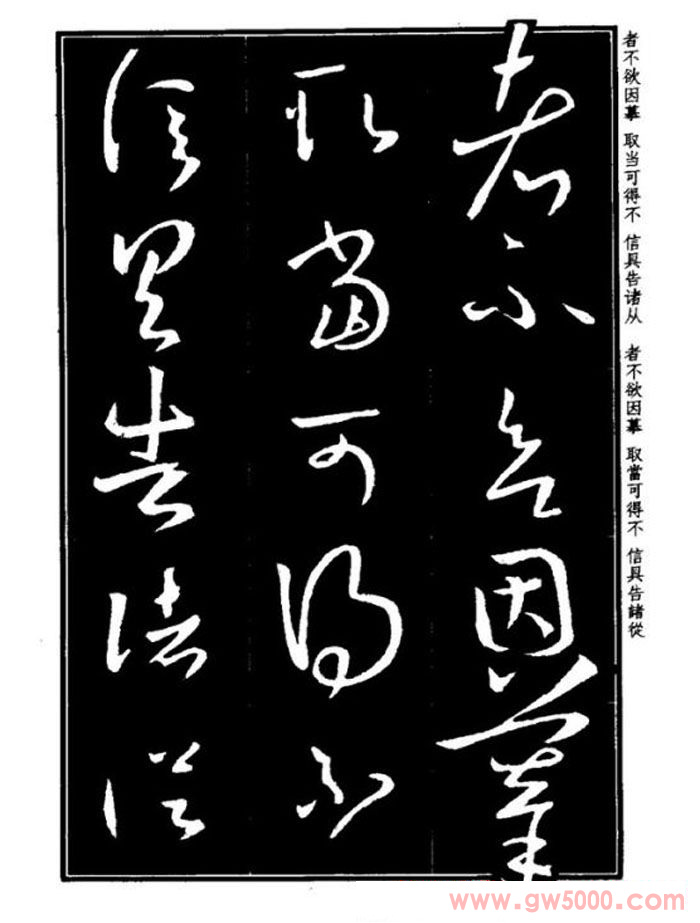 者不欲因摹 取当可得不 信具告诸从 者不欲因摹 取當可得不 信具告諸從
者不欲因摹
取當可得不
信具告諸從
www.gw5000.com